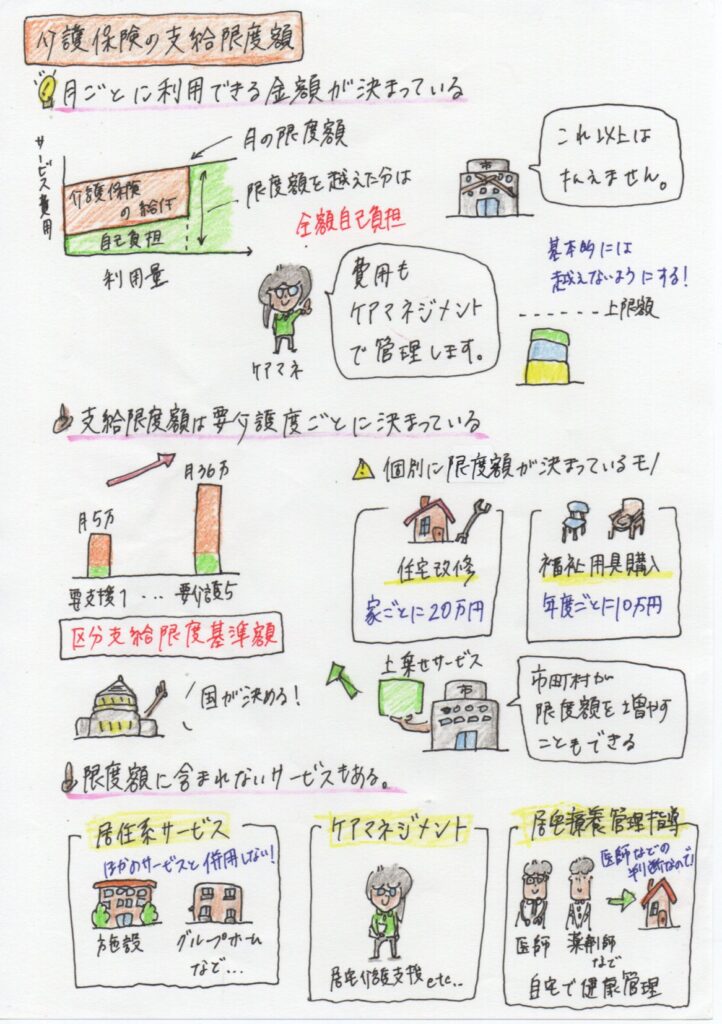 介護保険の支給限度額
月ごとに利用できる金額が決まっている
サービス費用
介護保険
の給付
自己負担
利用量
月の限度額
限度額を越えた分は
全額自己負担
市
これ以上は
払えません。
費用も
ケアマネジメント
で管理します。
ケアマネ
基本的には
越えないようにする!
上限額
支給限度額は要介護度ごとに決まっている
月5万
月36万
要支援1 ... 要介護5
区分支給限度基準額
国が決める!
個別に限度額が決まっているモノ
住宅改修
家ごとに20万円
福祉用具購入
年度ごとに10万円
上乗せサービス
市
市町村が
限度額を増やす
こともできる
限度額に含まれないサービスもある。
居住系サービス
ほかのサービスと併用しない!
施設
グループホーム
など...
ケアマネジメント
居宅介護支援etc..
居宅療養管理指導
医師などの
判断なので!
医師
薬剤師
など
自宅で健康管理